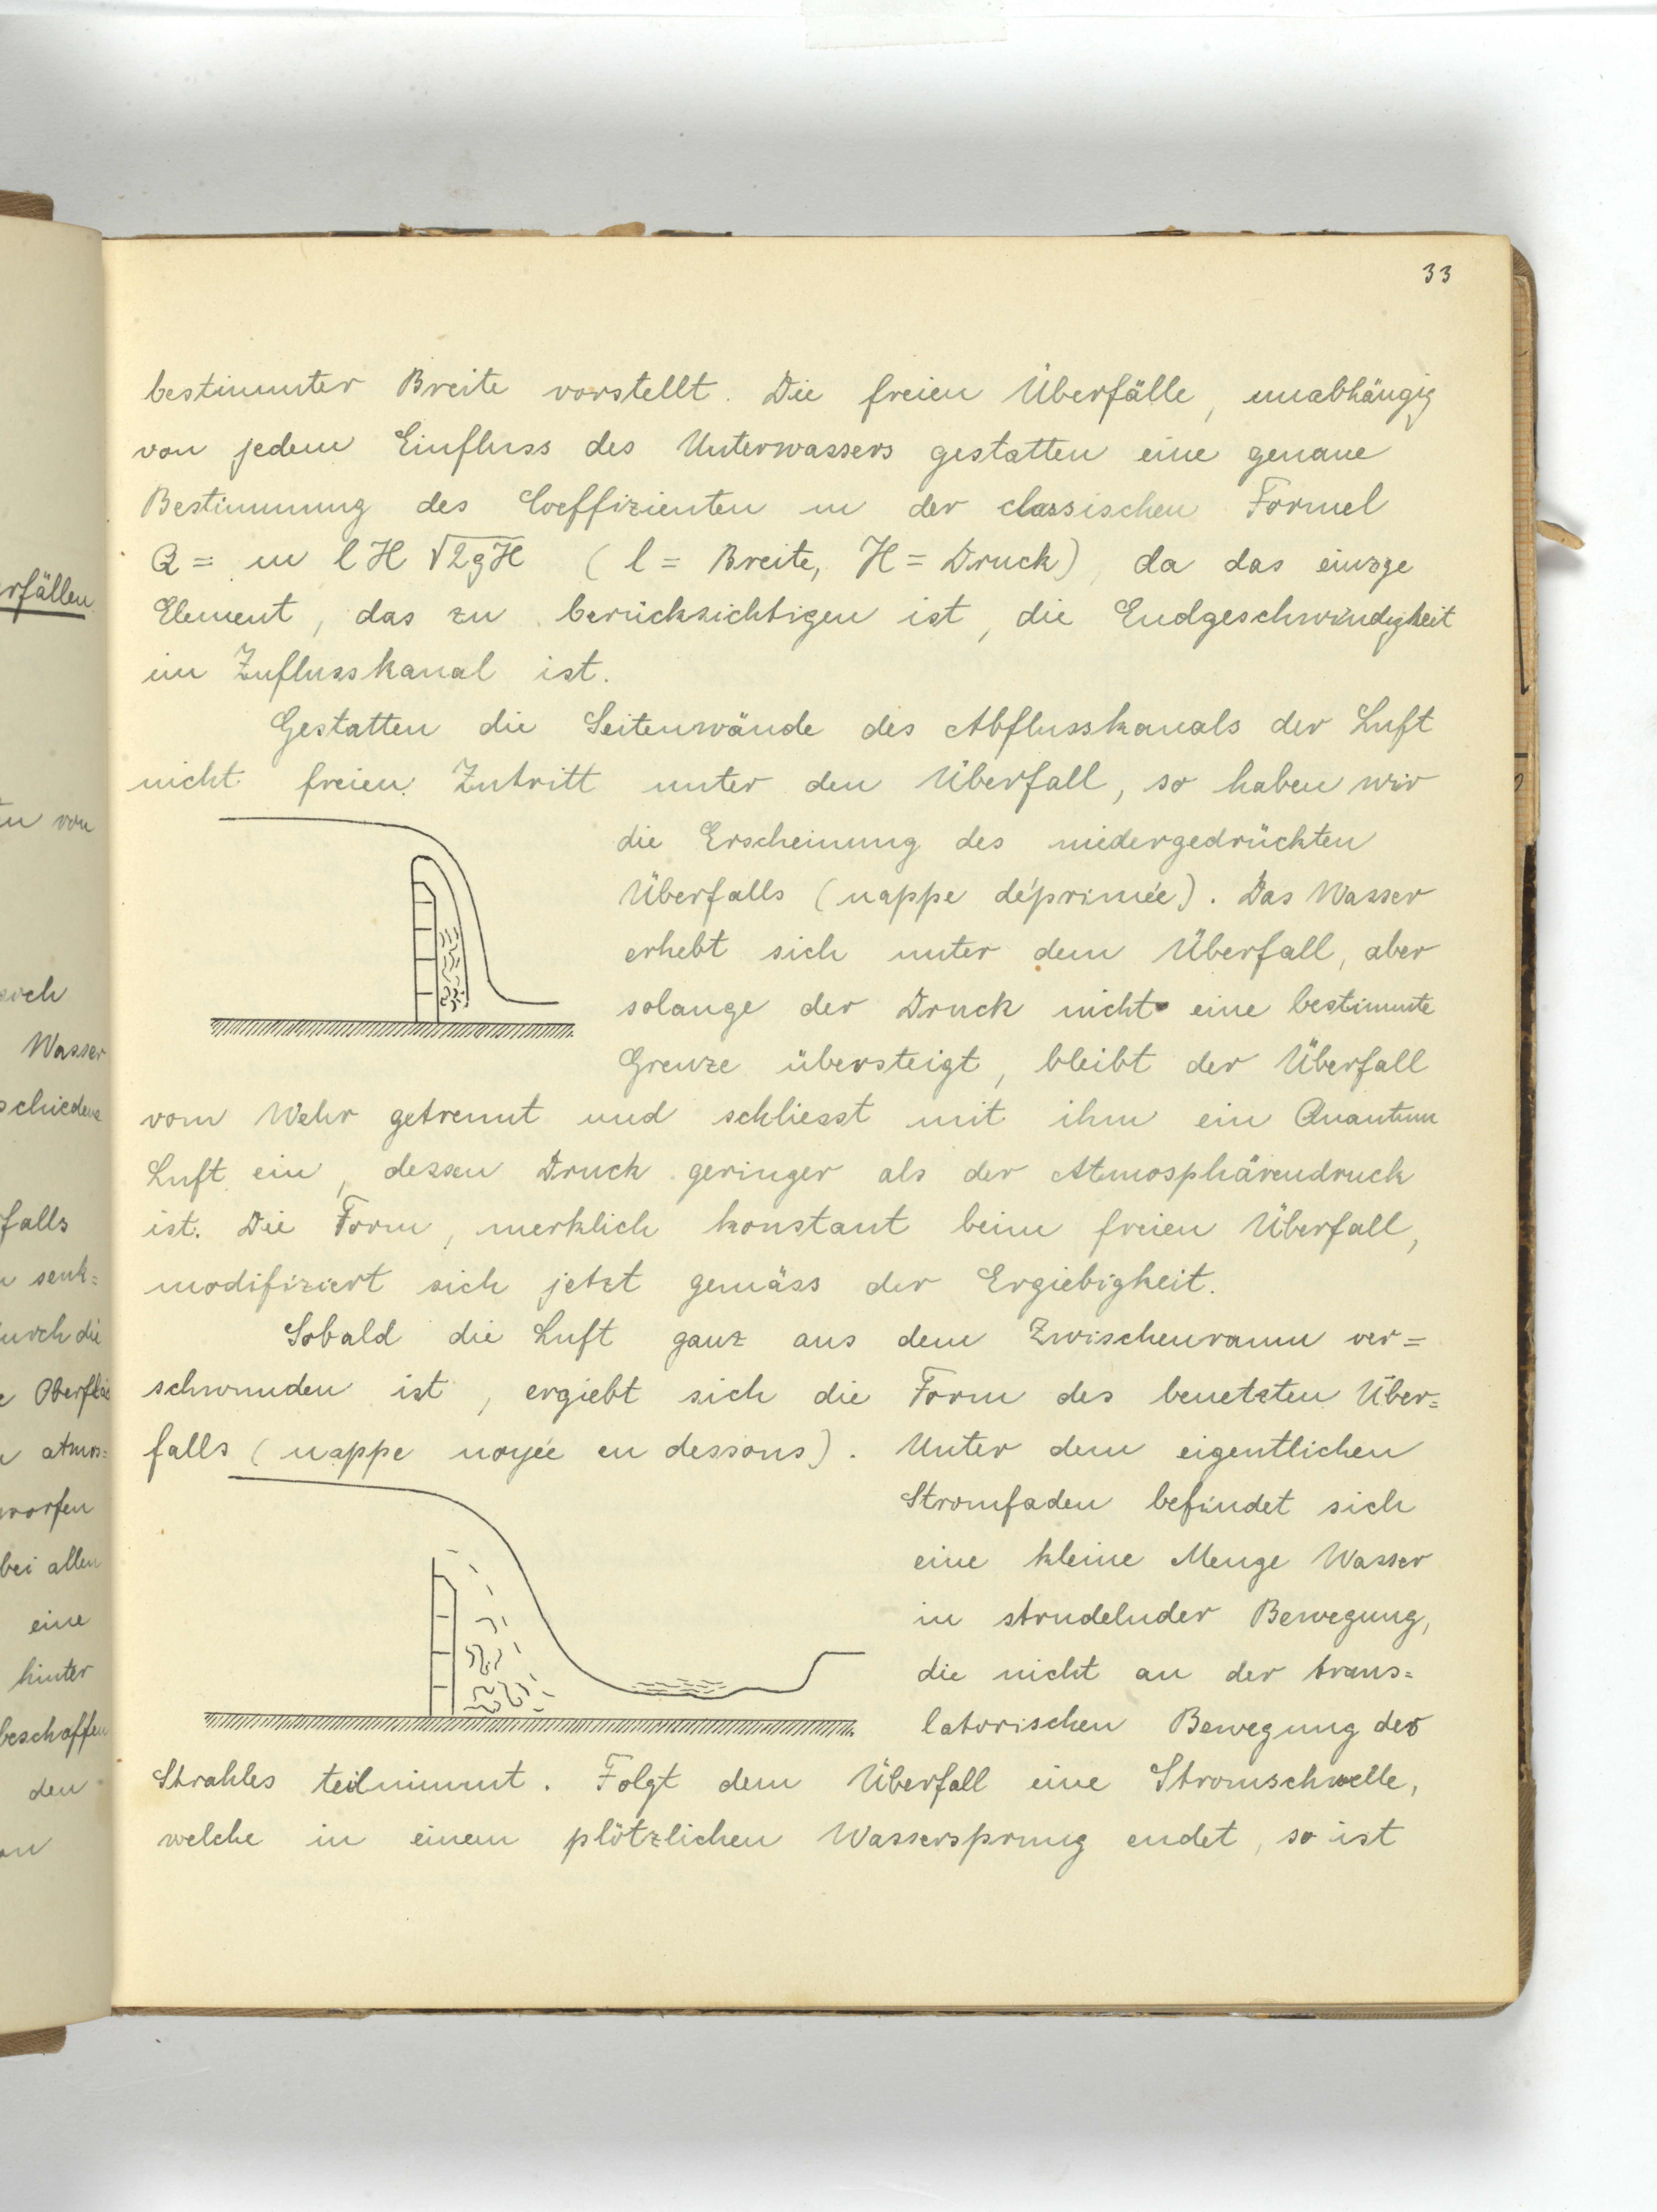 33
bestimmter Breite vorstellt. Die freien Überfälle, unabhängig
von jedem Einfluss des Unterwassers gestatten eine genaue
Bestimmung des Coeffizienten m der classischen Formel
Q = m l H √2gH (l = Breite, H = Druck), da das einzge
Element, das zu berücksichtigen ist, die Endgeschwindigkeit
im Zuflusskanal ist.
Gestatten die Seitenwände des Abflusskanals der Luft
nicht freien Zutritt unter den Überfall, so haben wir
die Erscheinung des niedergedrückten
Überfalls (nappe déprimée). Das Wasser
erhebt sich unter dem Überfall, aber
solange der Druck nicht eine bestimmte
Grenze übersteigt, bleibt der Überfall
vom Wehr getrennt und schliesst mit ihm ein Quantum
Luft ein, dessen Druck geringer als der Atmosphärendruck
ist. Die Form, merklich konstant beim freien Überfall,
modifiziert sich jetzt gemäss der Ergiebigkeit.
Sobald die Luft ganz aus dem Zwischenraum ver=
schwunden ist, ergiebt sich die Form des benetzten Über=
falls (nappe noyée en dessous). Unter dem eigentlichen
Stromfaden befindet sich
eine kleine Menge Wasser
in strudelnder Bewegung,
die nicht an der trans=
latorischen Bewegung des
Strahles teilnimmt. Folgt dem Überfall eine Stromschwelle,
welche in einem plötzlichen Wassersprung endet, so ist
rfällen
von
Wasser
falls
senk=
durch die
atmos=
worfen
bei allen
eine
hinter
beschaffen
den